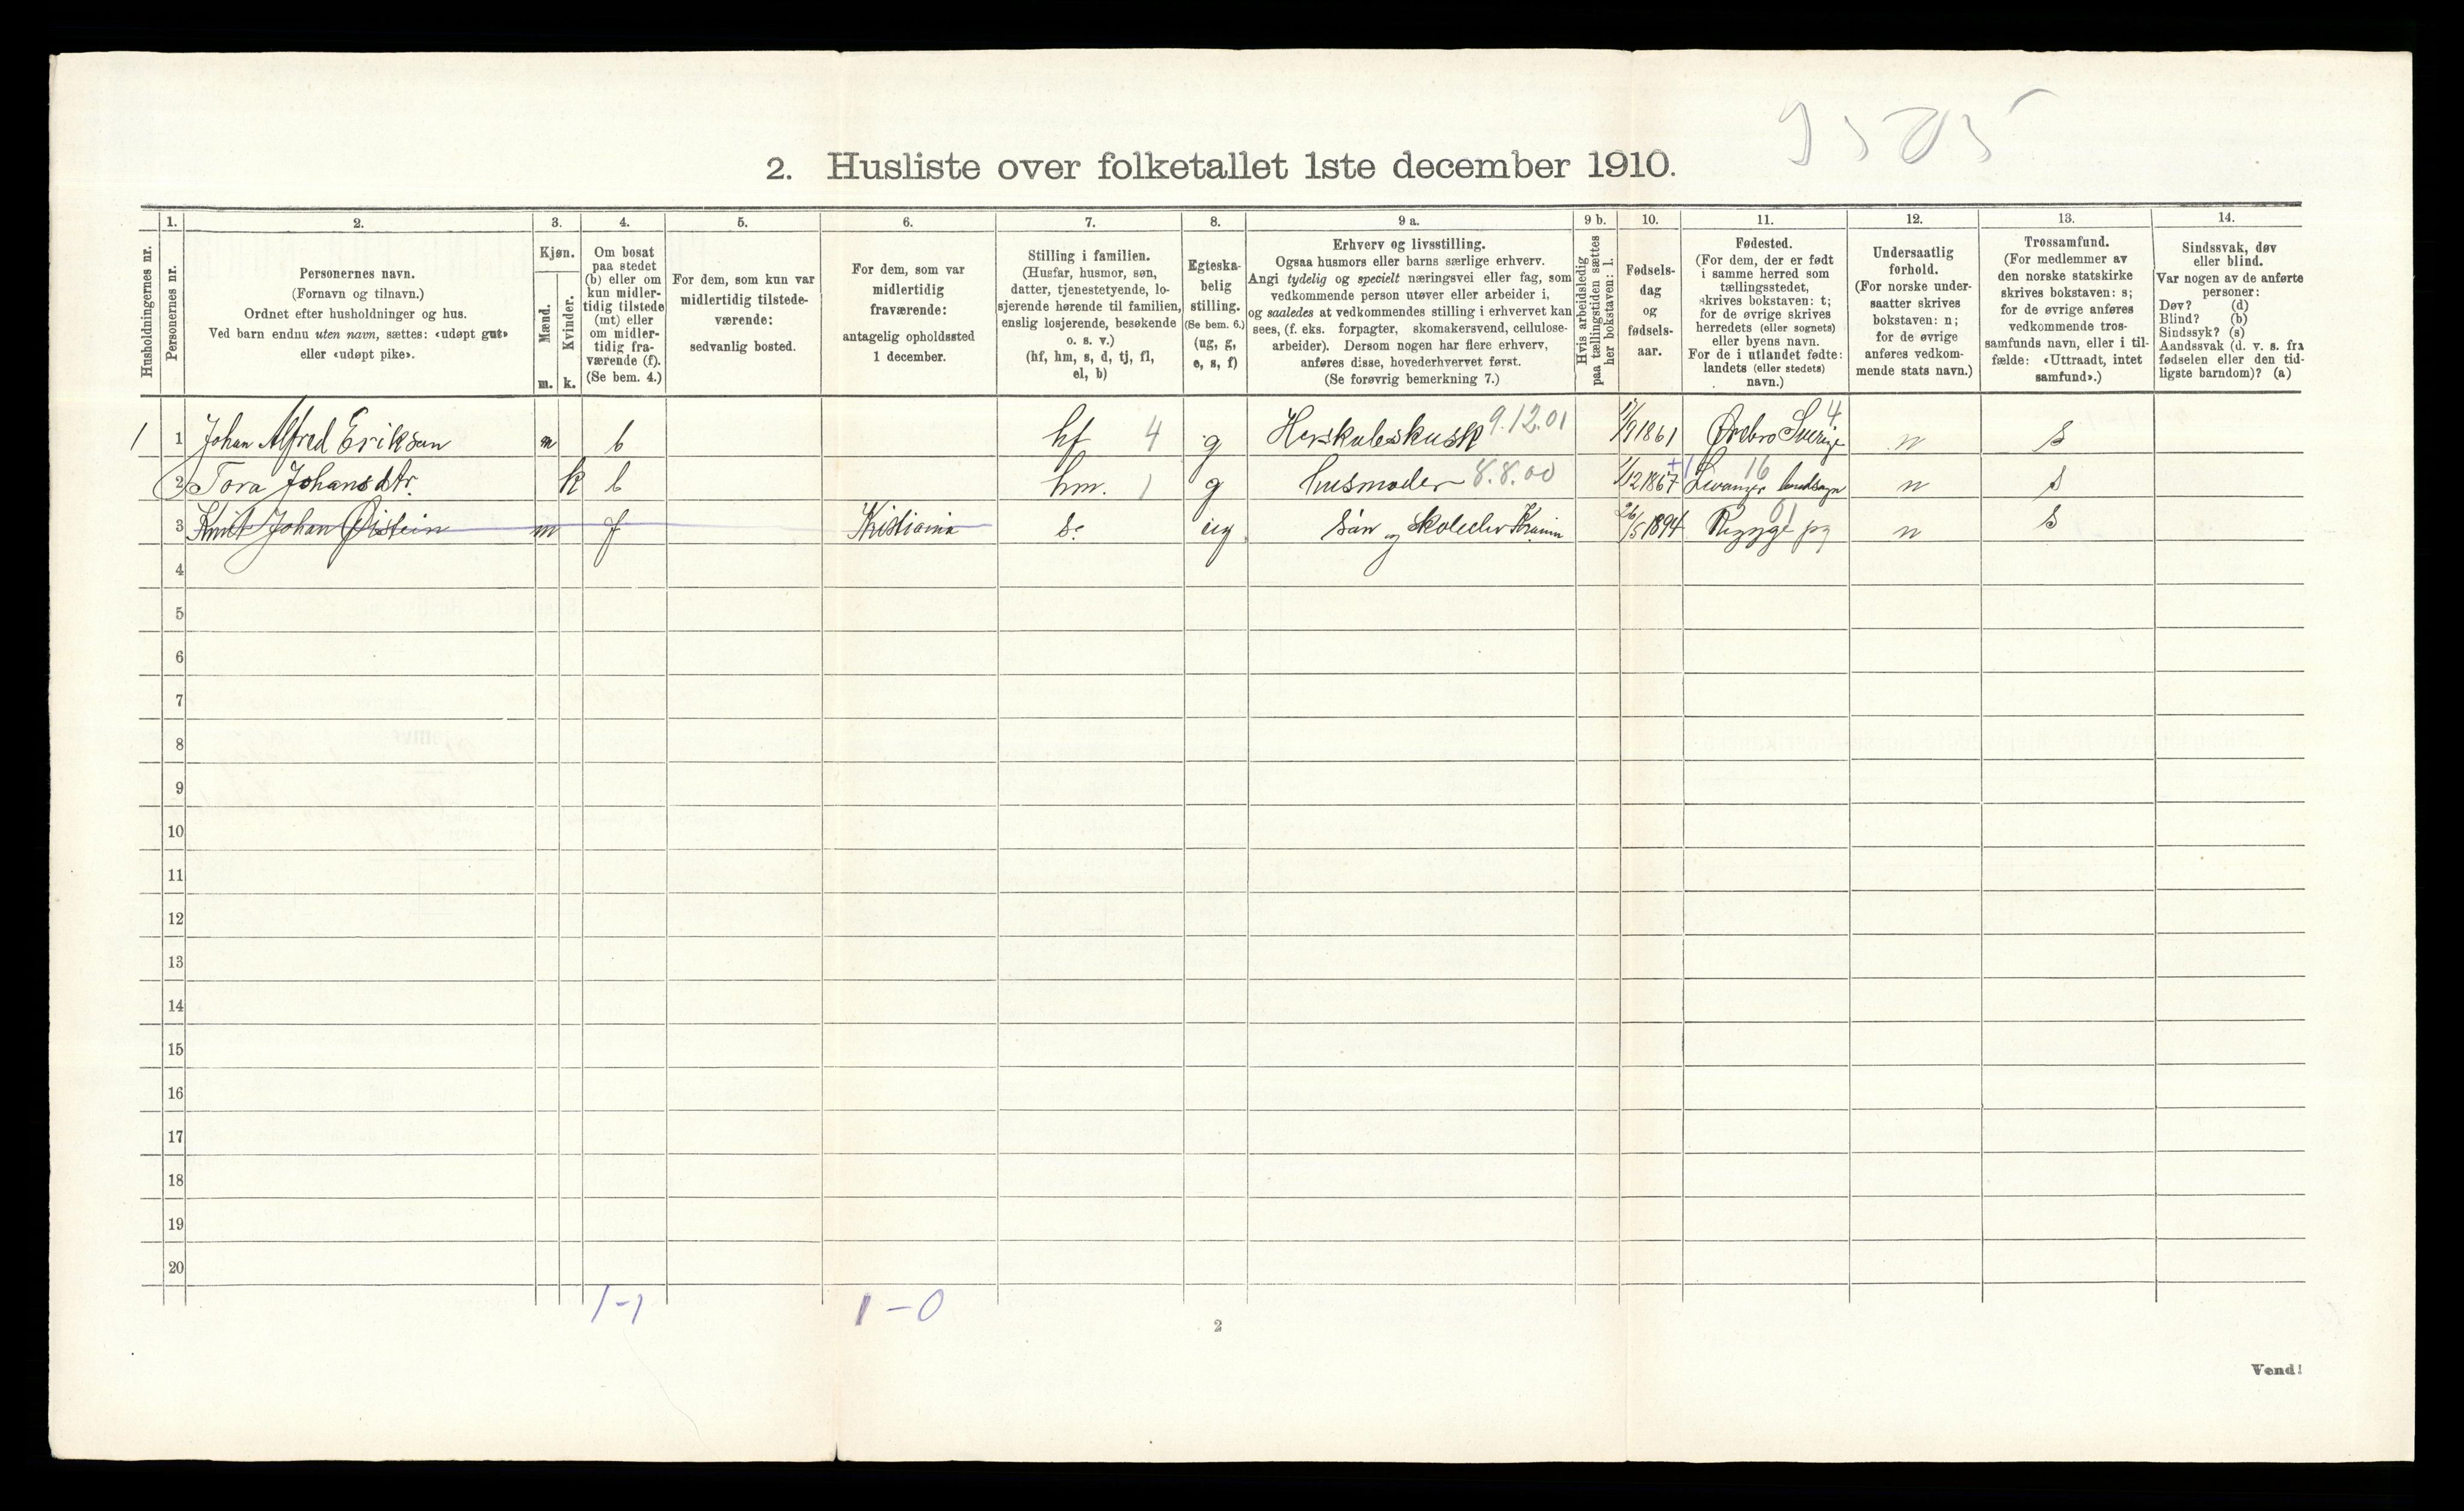 9585
2. Husliste over folketallet 1ste december 1910.
Husholdningernes nr.
1.
Personernes nr.
2.
Personernes navn.
(Fornavn og tilnavn.)
Ordnet efter husholdninger og hus.
Ved barn endnu uten navn, sættes: «udøpt gut»
eller «udøpt pike».
3.
Kjøn.
Mænd.
m.
Kvinder.
k.
4.
Om bosat
paa stedet
(b) eller om
kun midler-
tidig tilstede
(mt) eller
om midler-
tidig fra-
værende (f).
(Se bem. 4.)
5.
For dem, som kun var
midlertidig tilstede-
værende:
sedvanlig bosted.
6.
For dem, som var
midlertidig
fraværende:
antagelig opholdssted
1 december.
7.
Stilling i familien.
(Husfar, husmor, søn,
datter, tjenestetyende, lo-
sjerende hørende til familien,
enslig losjerende, besøkende
o. s. v.)
(hf, hm, s, d, tj, fl,
el, b)
8.
Egteska-
belig
stilling.
(Se bem. 6.)
(ug, g,
e, s, f)
9 a.
Erhverv og livsstilling.
Ogsaa husmors eller barns særlige erhverv.
Angi tydelig og specielt næringsvei eller fag, som
vedkommende person utøver eller arbeider i,
og saaledes at vedkommendes stilling i erhvervet kan
sees, (f. eks. forpagter, skomakersvend, cellulose-
arbeider). Dersom nogen har flere erhverv,
anføres disse, hovederhvervet først.
(Se forøvrig bemerkning 7.)
9 b.
Hvis arbeidsledig
paa tællingstiden sættes
her bokstaven: l.
10.
Fødsels-
dag
og
fødsels-
aar.
11.
Fødested.
(For dem, der er født
i samme herred som
tællingsstedet,
skrives bokstaven: t;
for de øvrige skrives
herredets (eller sognets)
eller byens navn.
For de i utlandet fødte:
landets (eller stedets)
navn.)
12.
Undersaatlig
forhold.
(For norske under-
saatter skrives
bokstaven: n;
for de øvrige
anføres vedkom-
mende stats navn.)
13.
Trossamfund.
(For medlemmer av
den norske statskirke
skrives bokstaven: s;
for de øvrige anføres
vedkommende tros-
samfunds navn, eller i til-
fælde: «Uttraadt, intet
samfund».)
14.
Sindssvak, døv
eller blind.
Var nogen av de anførte
personer:
Døv? (d)
Blind? (b)
Sindssyk? (s)
Aandssvak (d. v. s. fra
fødselen eller den tid-
ligste barndom)? (a)
1 1 Johan Alfred Eriksen m b hf 4 g Herskabskusk 9.12.01 1/9 1861 Ørebro Sverige 4 n s
2 Tora Johansdtr. k b hm. 1 g husmoder 8.8.00 1/12 1867 Levanger landsogn 16 n s
3 Knut Johan Øistein m f Kristiania s. ug Søn og skoleelev Kra.nia 26/5 1894 Rygge 01 n s
4
5
6
7
8
9
10
11
12
13
14
15
16
17
18
19
20
1-1 1-0
2
Vend!